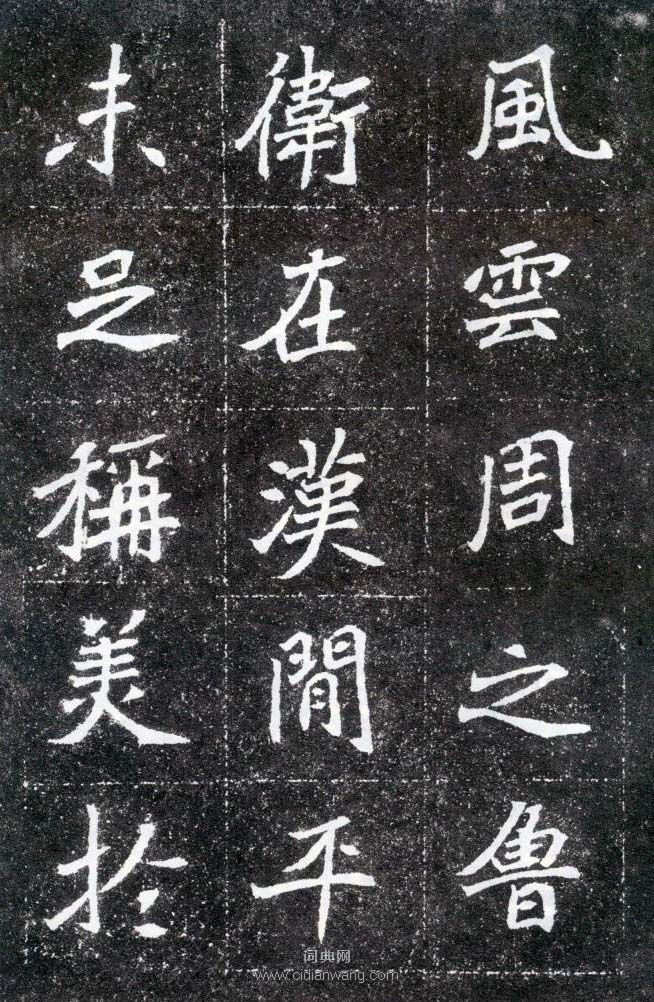 風雲周之魯
衛在漢閒平
未足稱美於
词典网
www.cidianwang.com